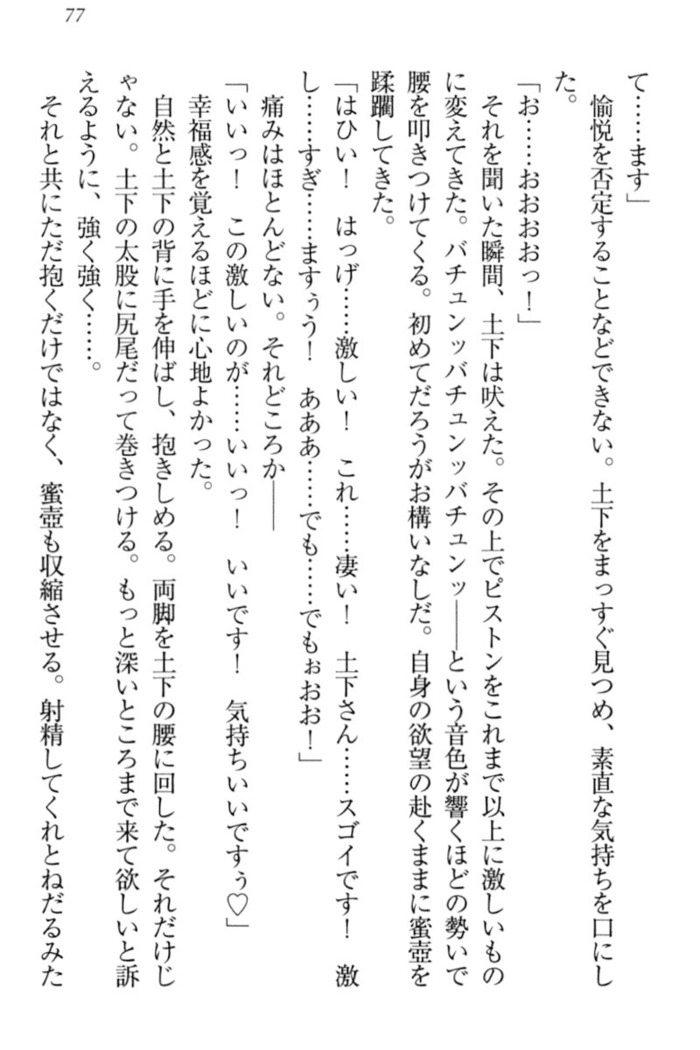 77
て……ます」
愉悦を否定することなどできない。土下をまっすぐ見つめ、素直な気持ちを口にし
た。
「お……おおおおっ！」
それを聞いた瞬間、土下は吠えた。その上でピストンをこれまで以上に激しいもの
に変えてきた。バチュンッバチュンッバチュンッ――という音色が響くほどの勢いで
腰を叩きつけてくる。初めてだろうがお構いなしだ。自身の欲望の赴くままに蜜壺を
蹂躙してきた。
「はひい！　はっげ……激しい！　これ……凄い！　土下さん……スゴイです！　激
し……すぎ……ますぅう！　あああ……でも……でもぉおお！」
痛みはほとんどない。それどころか――
「いいっ！　この激しいのが……いいっ！　いいです！　気持ちいいですぅ♡」
幸福感を覚えるほどに心地よかった。
自然と土下の背に手を伸ばし、抱きしめる。両脚を土下の腰に回した。それだけじ
ゃない。土下の太股に尻尾だって巻きつける。もっと深いところまで来て欲しいと訴
えるように、強く強く……。
それと共にただ抱くだけではなく、蜜壺も収縮させる。射精してくれとねだるみた